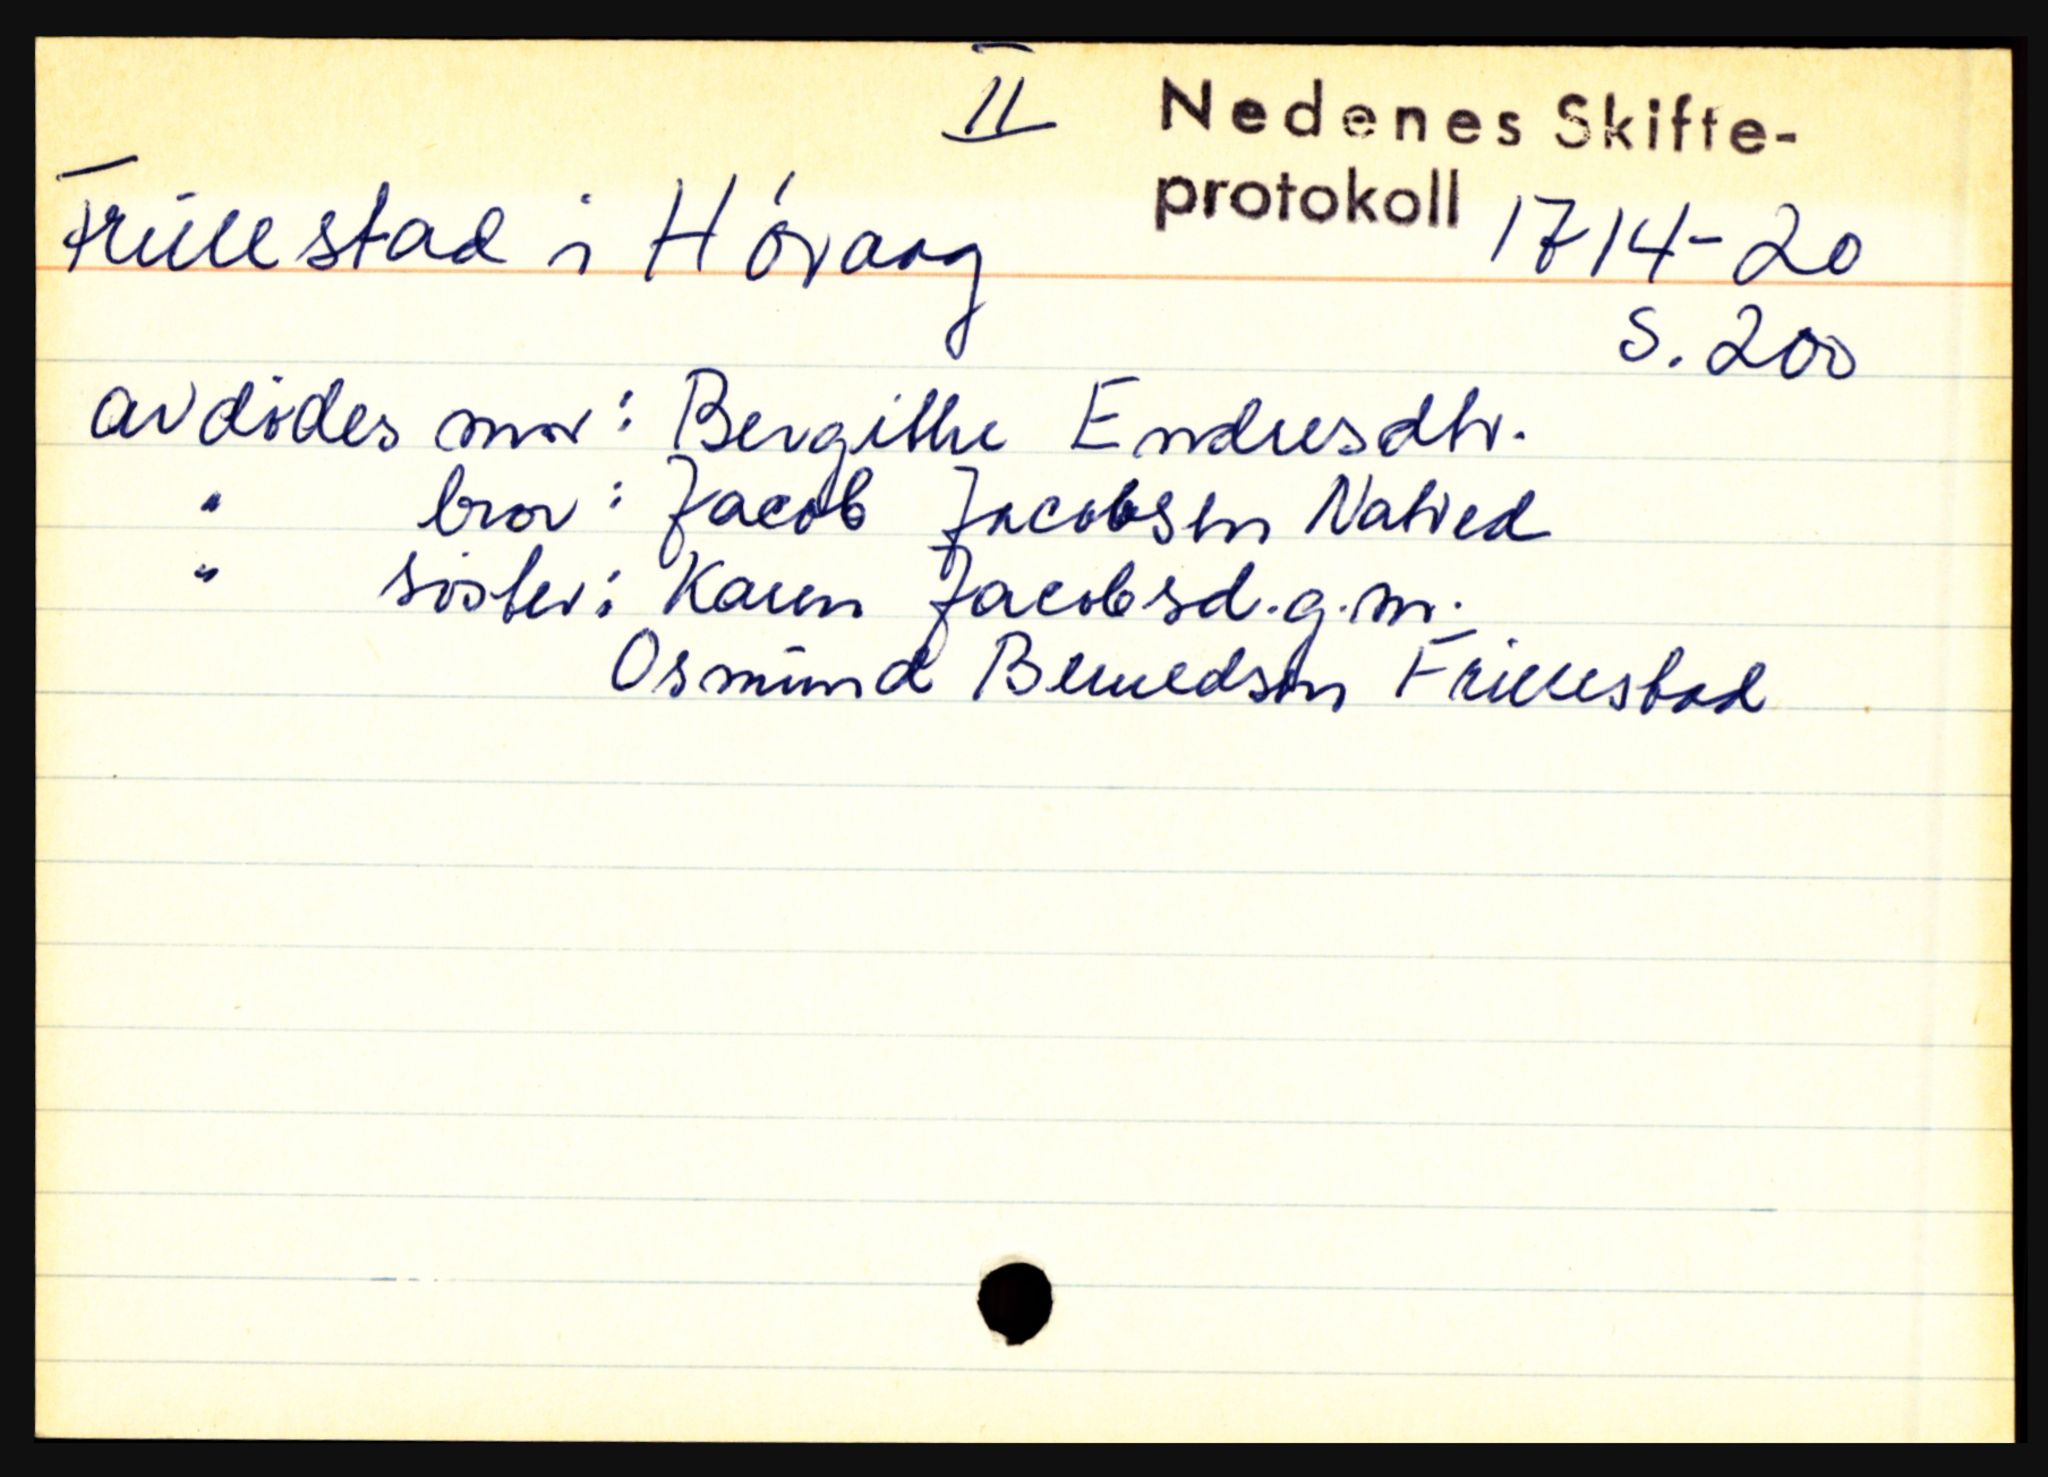 II
Nedenes Skifte-
protokoll 1714-20
Früllestad i Høvaag
S. 200
avdødes mor: Bergithe Endresdtr.
" bror: Jacob Jacobsen Natved
" søster: Karen Jacobsd. g.m.
Osmund Berulfsen Frillestad